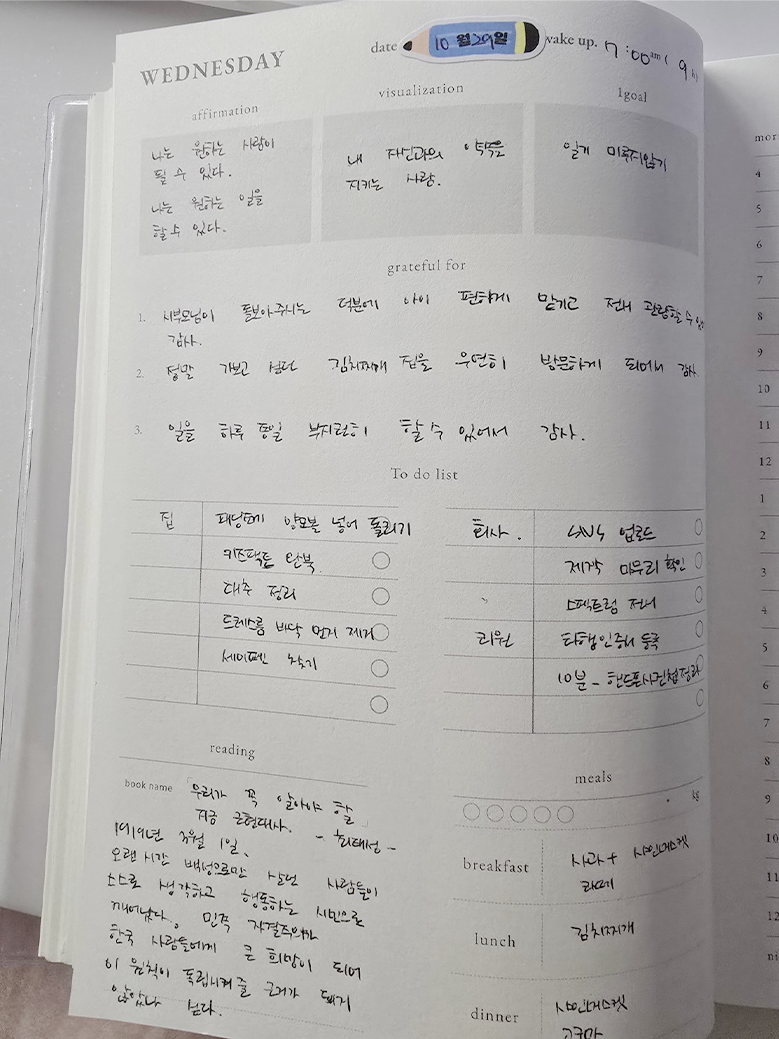 WEDNESDAY
date 10월29일 wake up. 7:00 am ( 9 h)
affirmation
나는 원하는 사람이
될 수 있다.
나는 원하는 일을
할 수 있다.
visualization
내 자신과의 약속을
지키는 사람.
1goal
일기 미루지않기
grateful for
1. 시부모님이 돌보아주시는 덕분에 아이 편하게 맡기고 전시 관람할 수 있어
감사.
2. 정말 가보고 싶던 김치찌개 집을 우연히 방문하게 되어서 감사.
3. 일을 하루 종일 부지런히 할 수 있어서 감사.
To do list
집 패딩에 양모볼 넣어 돌리기
키즈팩토 완북
대추 정리
드레스룸 바닥 먼지 제거
세이펜 찾기
회사. SNS 업로드
제작 마무리 확인
스펙트럼 전시
리원
10분 - 핸드폰사진첩정리
reading
book name 「우리가 꼭 알아야 할
지금 근현대사.」 - 최태성 -
1919년 3월 1일.
오랜 시간 백성으로만 살던 사람들이
스스로 생각하고 행동하는 시민으로
깨어났다. 민족 자결주의가
한국 사람들에게 큰 희망이 되어
이 원칙이 독립시켜 줄 근거가 돼지
않았나 싶다.
meals
breakfast 사과 + 샤인머스켓
라떼
lunch 김치찌개
dinner 샤인머스켓
고구마
mor
4
5
6
7
8
9
10
11
12
1
2
3
4
5
6
7
8
9
10
11
12
ni